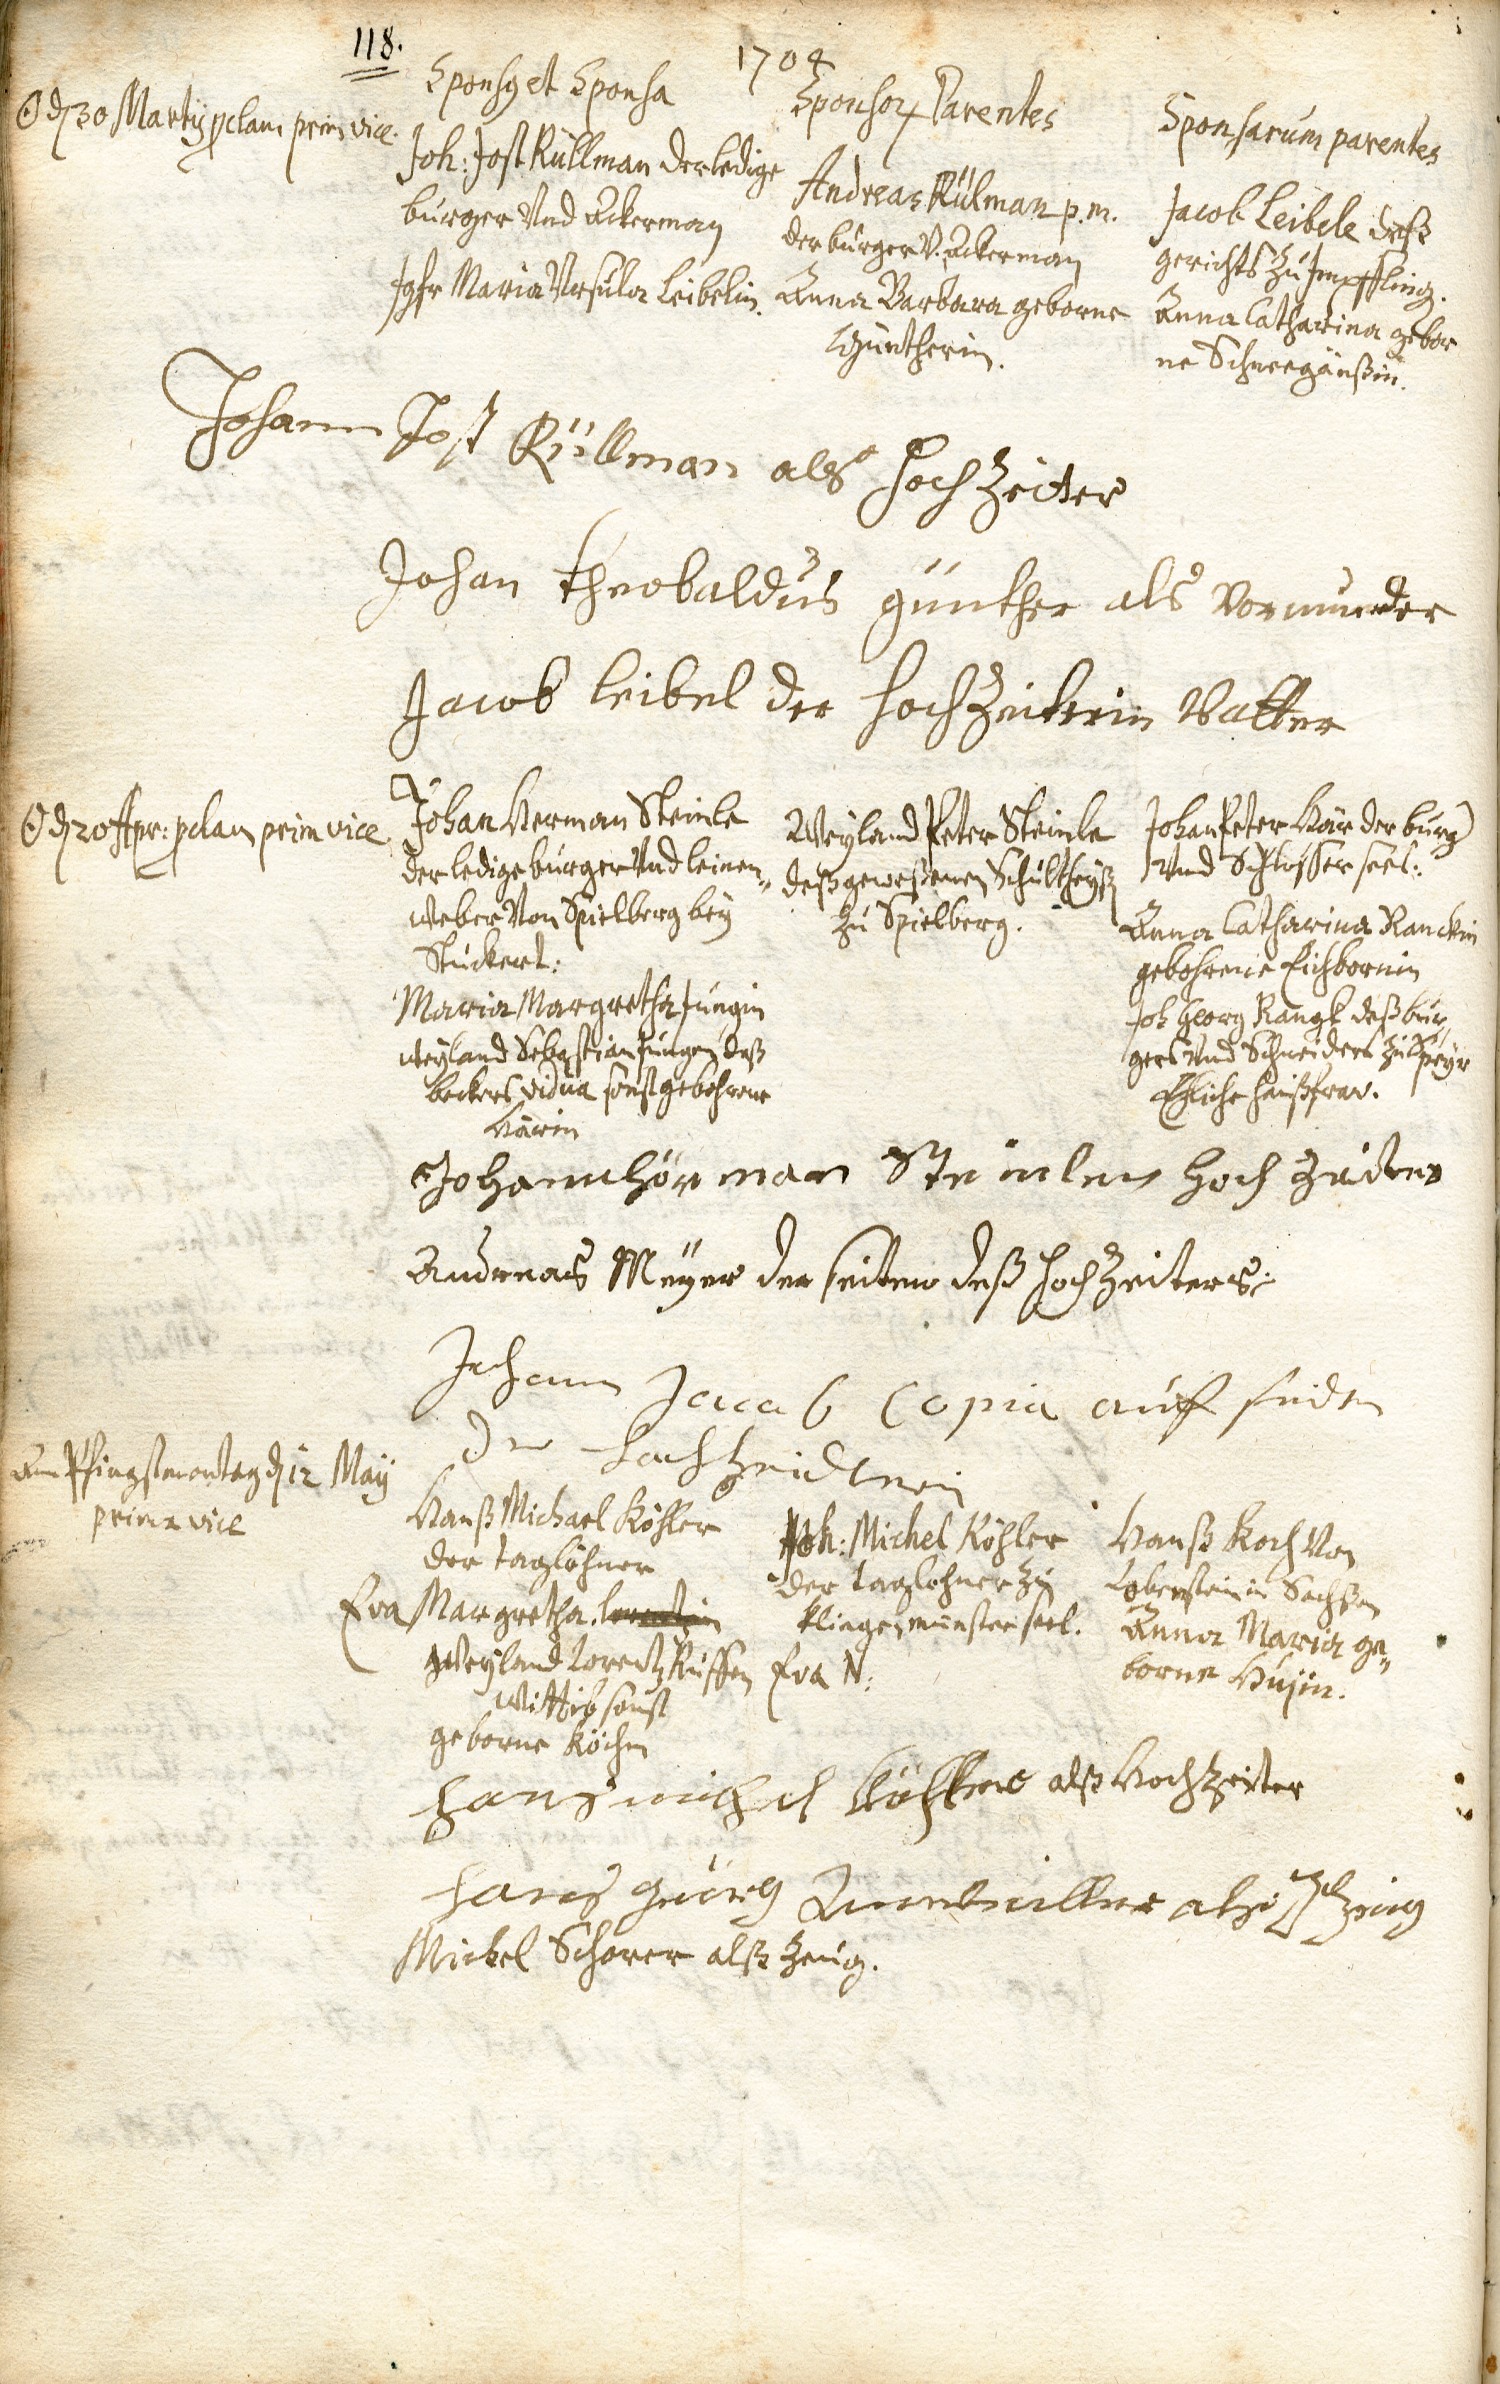 118.
1704
Sponsq et Sponsa
Sponsor Parentes
Sponsarum parentes
☉ d 30 Martij pclam prim vice.
Joh: Jost Rüllman der ledige
burger Vnd Ackerman
Jgfr Maria Ursula Leibelin.
Andreas Rülman p. m.
der burger V. Ackerman
Anna Barbara geborne
Güntherin.
Jacob Leibele deß
gerichts zu Impffling.
Anna Catharina gebor
ne Schneegänßin.
Johann Jost Rüllman als HochZeiter
Johan Theobaldus günther als Vormunder
Jacob Leibel der HochZeiterin Vatter
☉ d 20 Apr: pclam prim vice
Johan Herman Steinle
der ledige burger Vnd leinen„
weber Von Spielberg bey
Stuckert:
Maria Margretha Jungin
weyland Sebastian Jungen deß
beckers vidua sonst gebohrene
Härin
Weyland Peter Steinle
deß geweßenen Schultheyß
zu Spielberg.
Johan Peter Här der burg
Vnd Schlosser seel:
Anna Catharina Ranckin
gebohrene Eichbornin
Joh Georg Rangk deß bur„
gers Vnd Schneiders zu Speyr
Ehliche haußfrav.
Johann hör man Steinlen hoch zeider
Andreas Meyer der seiten deß HochZeiters:
Johann Jacob Copia auf seiden
der hochzeiderin
Am Pfingstmontag d 12 May
prima vice
Hanß Michael Köhler
der taglöhner
Eva Margretha Lorentzin
Weyland Lorentz Russen
Wittib sonst
geborne Köchin
Joh: Michel Köhler
der taglohner zu
Klingenmünster seel.
Eva N:
Hanß Koch Von
Lobenstein in Sachßen
Anna Maria ge„
borne
hans michel Köhler alß Hochzeiter
hans Geörg als Zeug
Michel Scherer alß Zeug.